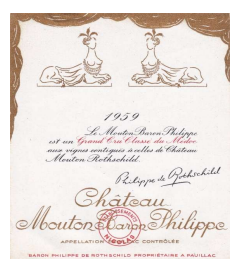 1959
Le Mouton Baron Philippe
est un Grand Cru Classé du Médoc
aux vignes contiguës à celles de Château
Mouton Rothschild.
Philippe de Rothschild
Château
Mouton Baron Philippe
APPELLATION PAUILLAC CONTRÔLÉE
BARON PHILIPPE DE ROTHSCHILD PROPRIÉTAIRE A PAUILLAC